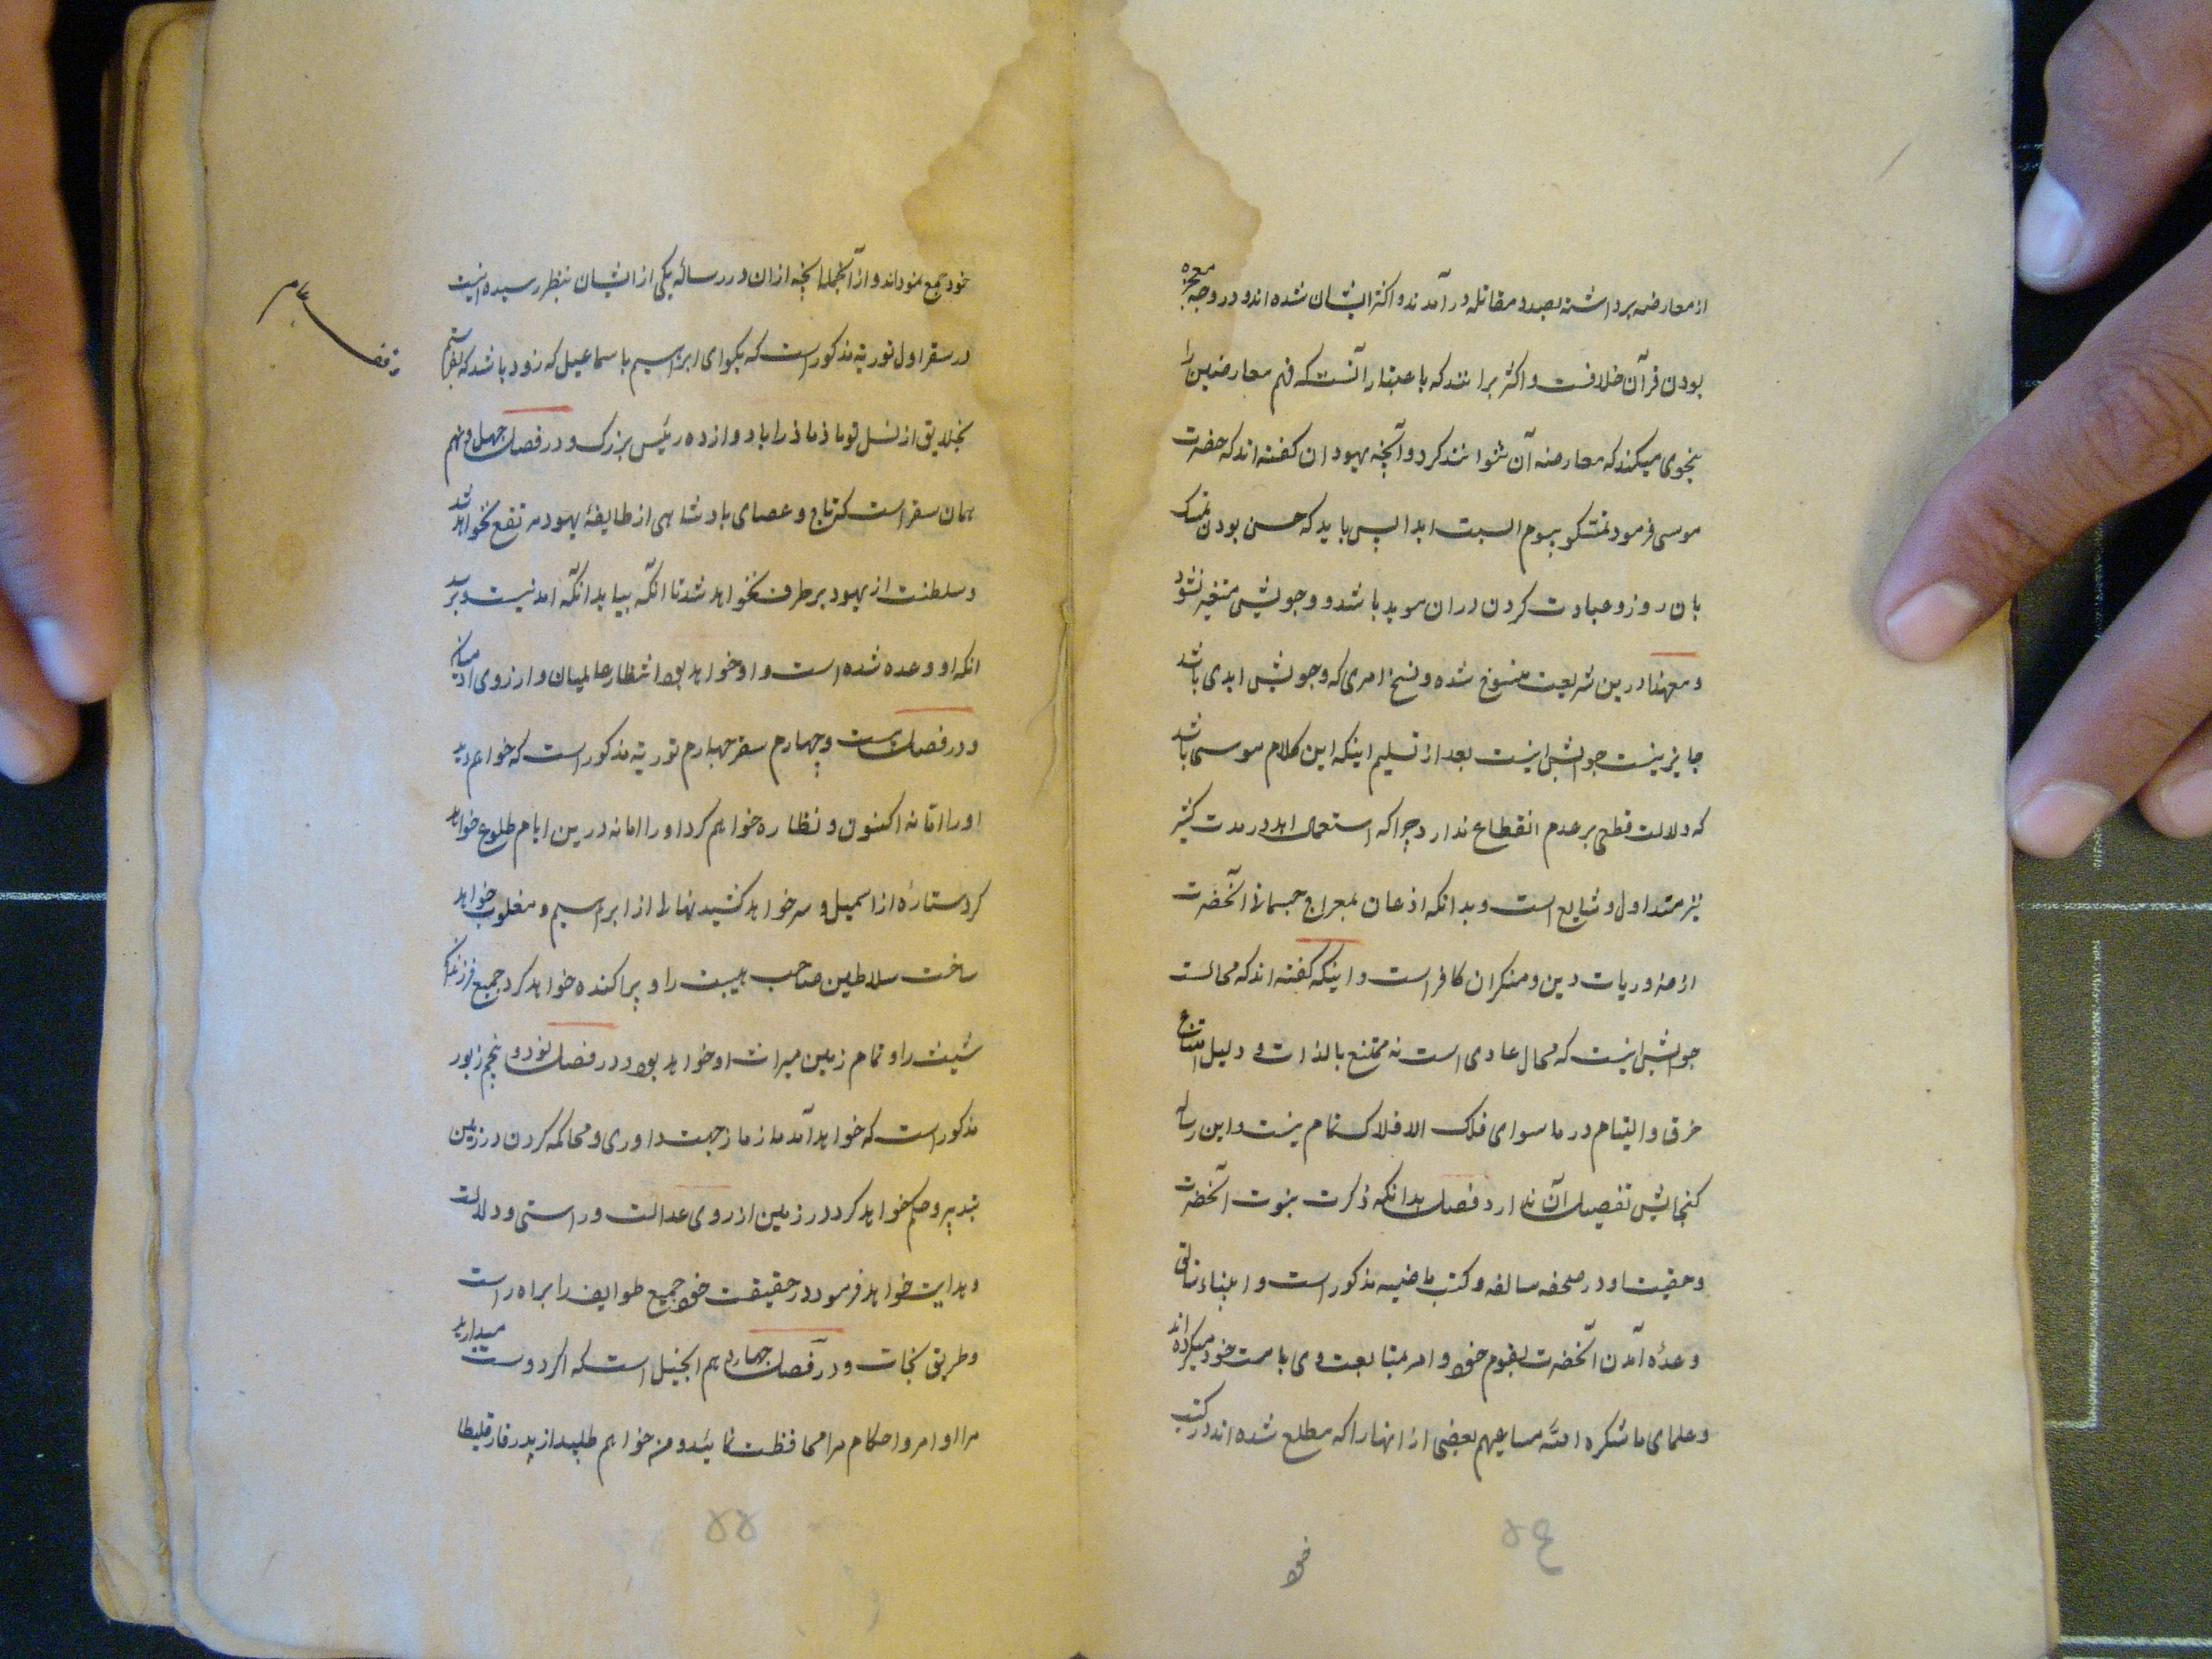 از معارضه برداشته بصدد مقاتله در آمدند و اکثر ایشان شده‌اند و در وجه معجزه
بودن قرآن خلافست و اکثر برانند که باعتبار آنست که فهم معارضین را
بنحوی میکند که معارضه آن نتوانند کرد و آنچه یهودان کفته‌اند که حضرت
موسی فرمود تمسکو بیوم السبت ابدا پس باید که حسن بودن تمسک
بان روز و عبادت کردن دران موبد باشد و وجوبش متغیر نشود
و معهذا درین شریعت منسوخ شده و نسخ امری که وجوبش ابدی باشد
جایز نیست جوابش اینست بعد از تسلیم اینکه این کلام موسی باشد
که دلالت قطعی بر عدم انقطاع ندارد چرا که استعمال ابد در مدت کثیر
نیز متداول و شایع است و بدانکه اذعان بمعراج جسمانی آنحضرت
از ضروریات دین و منکران کافر است و اینکه کفته‌اند که محالست
جوابش اینست که محال عادی است نه ممتنع بالذات و دلیل امتناع
خرق و التیام در ماسوای فلک الافلاک تمام نیست و این رساله
کنجایش تفصیل آن ندارد فصل بدانکه ذکرت نبوت آنحضرت
و حقیت او در صحفه سالفه و کتب ماضیه مذکور است و انبیاء سابق
وعدهٔ آمدن آنحضرت بقوم خود و امر بمتابعت وی بامت خود میکرده‌اند
و علمای ما شکره الله مساعیهم بعضی از انها را که مطلع شده‌اند در کتب
خود
۵۴
خود جمع نموداند و از آنجمله آنچه ازان در رسالهٔ یکی از ایشان بنظر رسیده اینست
در سفر اول توریة مذکور است که بکوای ابراهیم باسماعیل که زود باشد که بفرستم
بخلایق از نسل تو ماذماذ را با دوازده رئیس بزرک و در فصل چهل و نهم
همان سفر است که تاج و عصای پادشاهی از طایفهٔ یهود مرتفع نخواهد شد
و سلطنت از یهود برطرف نخواهد شد تا انکه بیاید انکه امدنیست و برسد
انکه او وعده شده است و او خواهد بود انتظار عالمیان و ارزوی ادمیان
و در فصل بیست و چهارم سفر چهارم توریة مذکور است که خواهم دید
او را اما نه اکنون و نظاره خواهم کرد او را اما نه درین ایام طلوع خواهد
کرد ستارهٔ از اسمیل و سر خواهد کشید نهالی از ابراهیم و مغلوب خواهد
ساخت سلاطین صاحب هیبت را و پراکنده خواهد کرد جمیع فرزندان
شیث را و تمام زمین میراث او خواهد بود و در فصل نود و پنجم زبور
مذکور است که خواهد آمد ماذماذ جهت داوری و محاکمه کردن در زمین
تدبیر و حکم خواهد کرد در زمین از روی عدالت و راستی و دلالت
و هدایت خواهد فرمود در حقیقت خود جمیع طوایف را براه راست
و طریق نجات و در فصل چهاردهم انجیل است که اکر دوست میدارید
مرا اوامر و احکام مرا محافظت نمائید و من خواهم طلبید از پدر فارقلیطا
۵۵